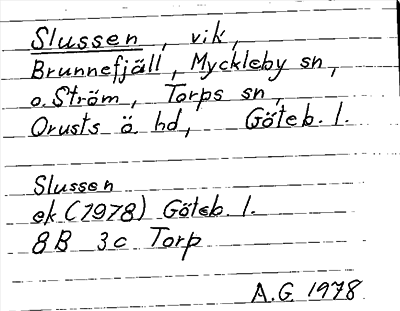 Slussen, vik,
Brunnefjäll, Myckleby sn,
o. Ström, Torps sn,
Orusts ö hd, Göteb. l.
Slussen
ek (1978) Göteb. l.
8B 3c Torp
A.G. 1978